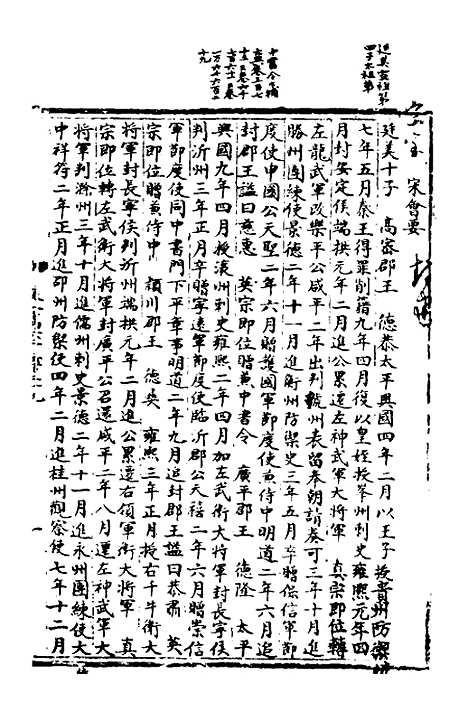 宋會要
廷美十子　高密郡王　德恭太平興國四年二月以王子授貴州防禦使
七年五月秦王得罪削籍九年四月復以皇姪授峯州刺史雍熙元年四
月封安定侯端拱元年二月進公累遷左神武軍大將軍　真宗即位轉
左龍武軍改樂平公咸平二年出判虢州表留奉朝請奏可三年十月進
勝州團練使景德二年十一月進衡州防禦史三年五月卒贈保信軍節
度使申國公天聖二年六月贈護國軍節度使兼侍中明道二年六月追
封郡王謚曰慈惠　英宗即位贈兼中書令　廣平郡王　德隆　太平
興國九年四月授瀼州刺史雍熙二年四月加左武衛大將軍封長寧侯
判沂州三年正月卒贈寧遠軍節度使臨沂郡公天禧二年六月贈崇信
軍節度使同中書門下平章事明道二年九月追封郡王謚曰恭肅　英
宗即位贈兼侍中　潁川郡王　德彝　雍熙三年正月授右千牛衛大
將軍封長寧侯判沂州端拱元年二月進公累遷右領軍衛大將軍　真
宗即位轉左武衛大將軍封廣平公召還咸平二年八月遷左神武軍大
將軍判滁州三年十月進儒州刺史景德二年十一月進永州團練使大
中祥符二年正月進邵州防禦使四年二月進桂州觀察使七年十二月